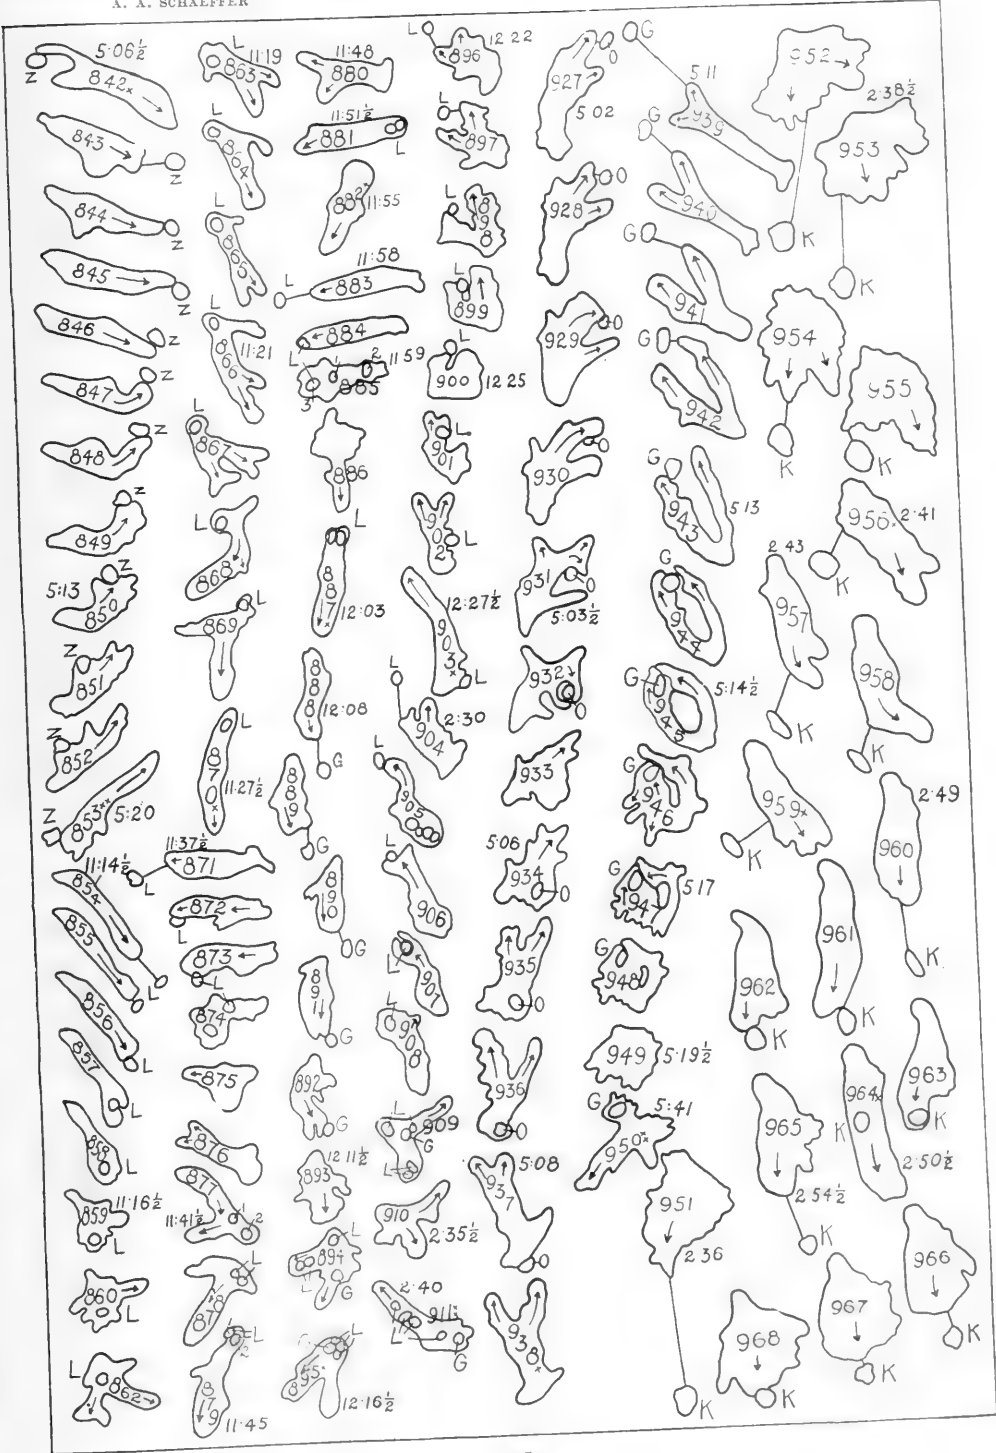 A. A. SCHAEFFER
5·06½
842ˣ
Z
843
Z
844
Z
845
Z
846
Z
847
Z
848
Z
849
Z
5:13
850
Z
851
Z
852
Z
853ˣˣ
5:20
Z
11:14½
854
855
L
856
L
857
L
858
L
859
11·16½
L
860
L
862
L
L
863
11:19
L
864
L
865
L
866
11:21
L
867
L
868
L
869
L
870ˣ
11:27½
11:37½
871
L
872
L
873
L
874
875
876
877
1
2
11:41½
L
878
L
2
879
11:45
11:48
880
11:51½
881
L
882ˣ
11:55
11:58
883
L
884
L
1
2
11:59
885
3
886
L
887ˣ
12:03
888
12:08
G
889
G
890
G
891
G
892
G
12 11½
893
L
894
L
G
L
895ˣ
12·16½
L
896
12 22
L
897
L
898
L
899
L
900
12 25
L
901
902
L
12:27½
903ˣ
L
L
2:30
904
L
905
L
906
L
907
L
908
L
909
G
L
910
2:35½
2:40
911
L
G
927
O
5 02
928
O
929
O
930
O
931
2
O
5:03½
932
O
933
5:06
934
O
935
O
936
O
5:08
937
O
938ˣ
G
5 11
939
G
940
G
941
G
942
G
943
5:13
G
944
G
945
5:14½
G
946
G
947
5:17
G
948
949
5:19½
G
5:41
950ˣ
951
2 36
K
952
K
2·38½
953
K
954
K
955
K
956ˣ
2·41
K
2 43
957
K
958
K
959ˣ
K
2·49
960
K
961
K
962
K
963
K
964ˣ
K
2:50½
965
2 54½
K
966
K
967
K
968
K